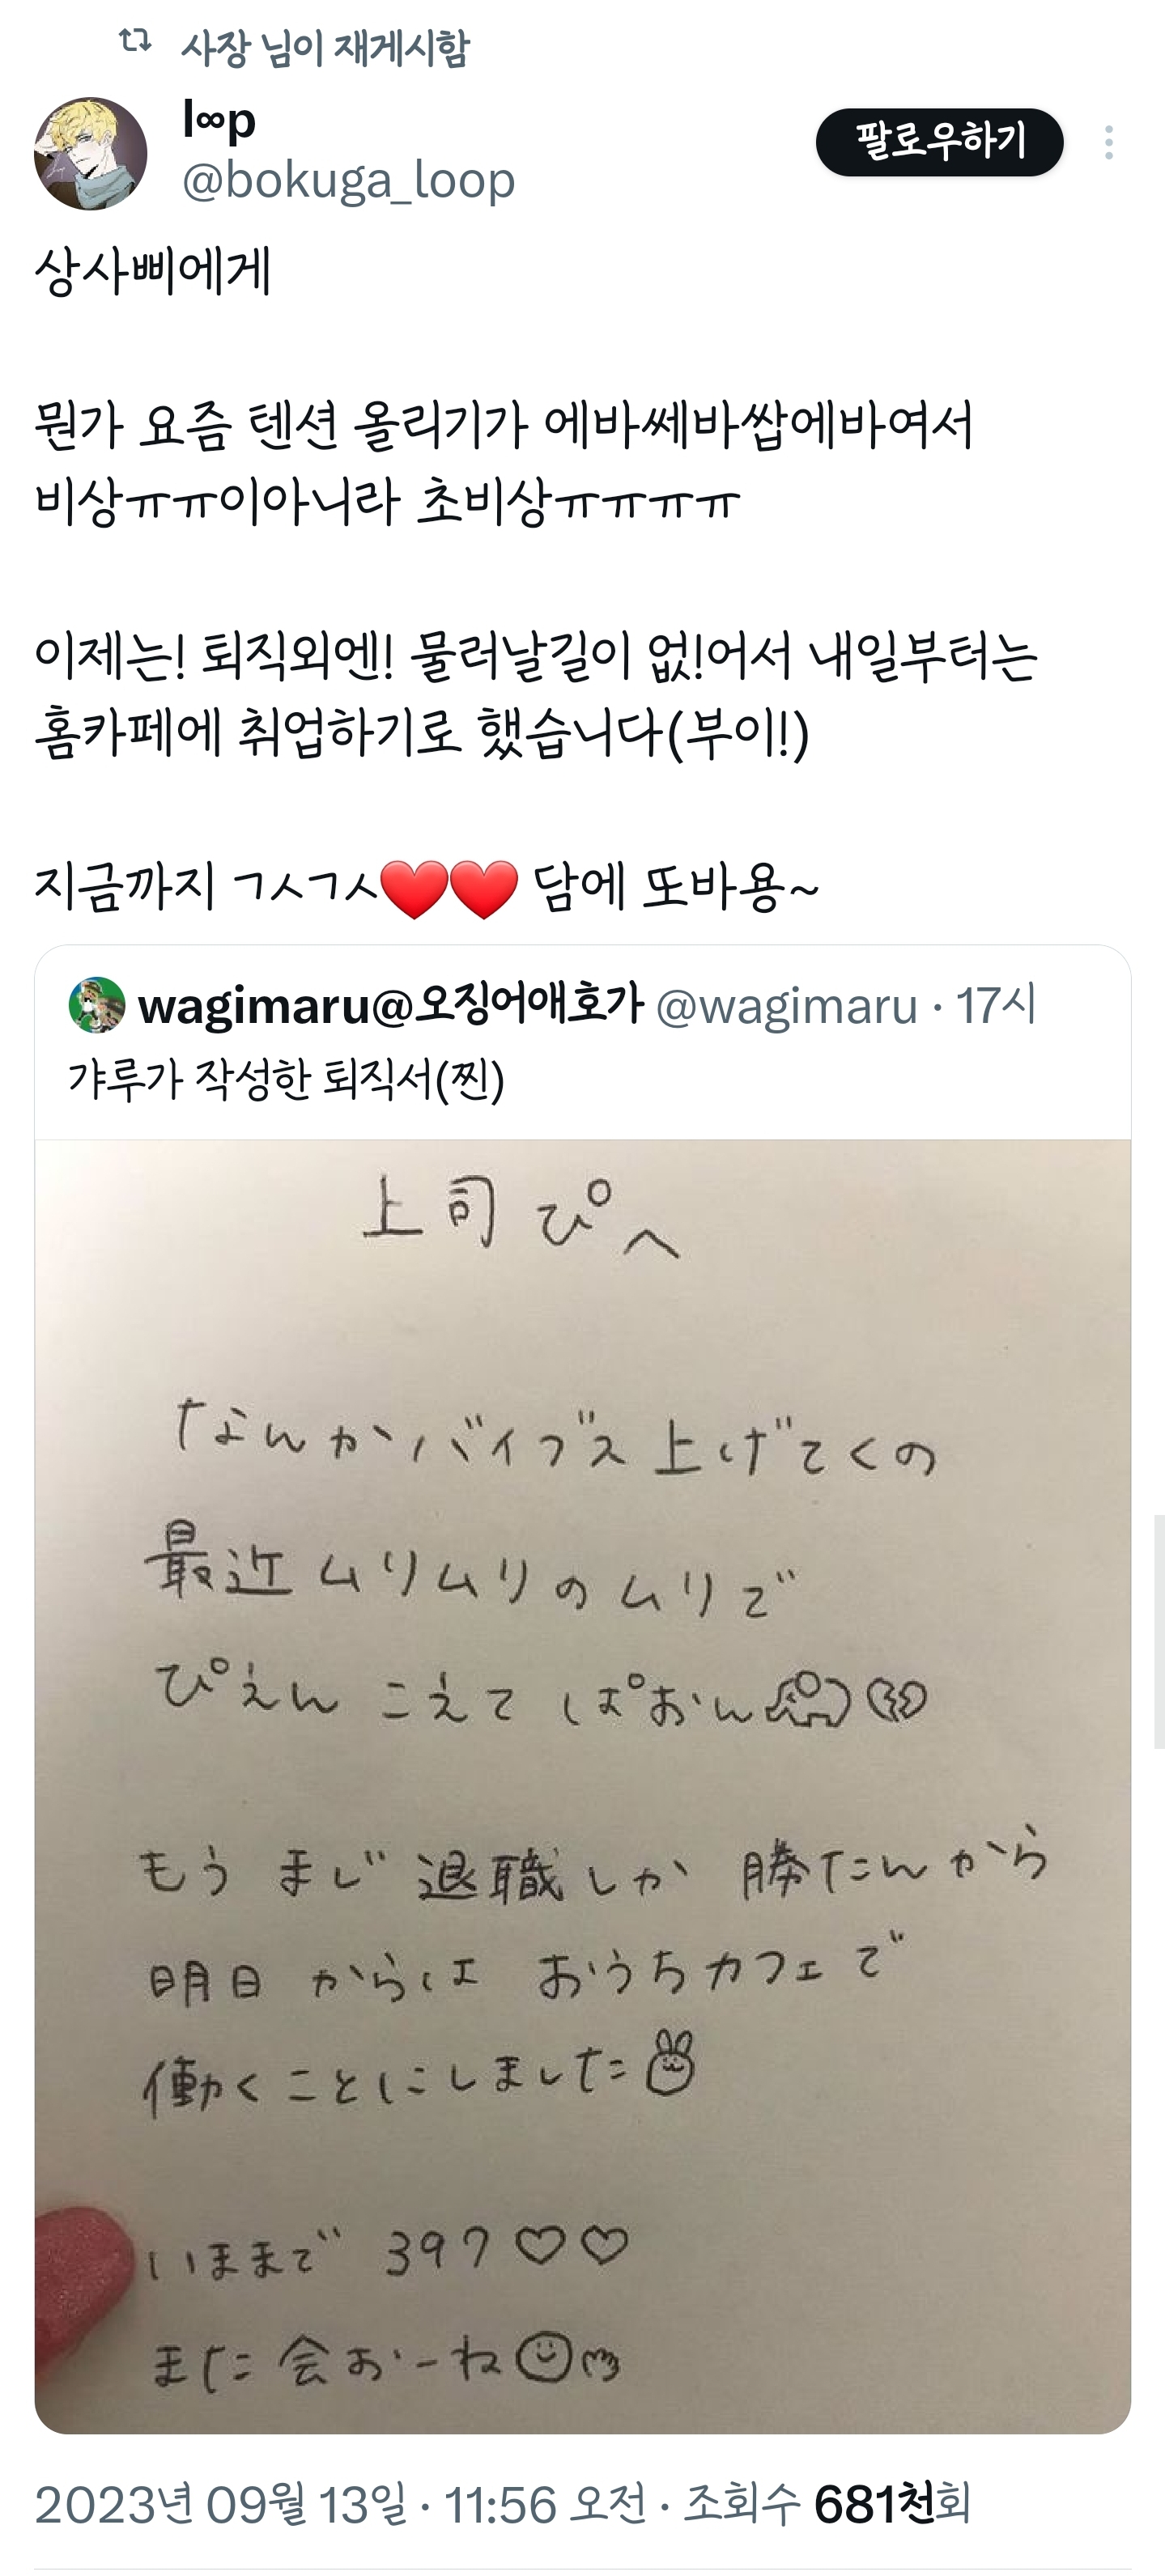 사장 님이 재게시함
l∞p
@bokuga_loop
팔로우하기
상사삐에게
뭔가 요즘 텐션 올리기가 에바쎄바쌉에바여서
비상ㅠㅠ이아니라 초비상ㅠㅠㅠㅠ
이제는! 퇴직외엔! 물러날길이 없!어서 내일부터는
홈카페에 취업하기로 했습니다(부이!)
지금까지 ㄱㅅㄱㅅ❤️❤️ 담에 또바용~
wagimaru@오징어애호가 @wagimaru · 17시
갸루가 작성한 퇴직서(찐)
上司ぴへ
なんかバイブス上げてくの
最近ムリムリのムリで
ぴえんこえてぱおん
もうまじ退職しか勝たんから
明日からはおうちカフェで
働くことにしました
いままで 397♡♡
また会おーね
2023년 09월 13일 · 11:56 오전 · 조회수 681천회